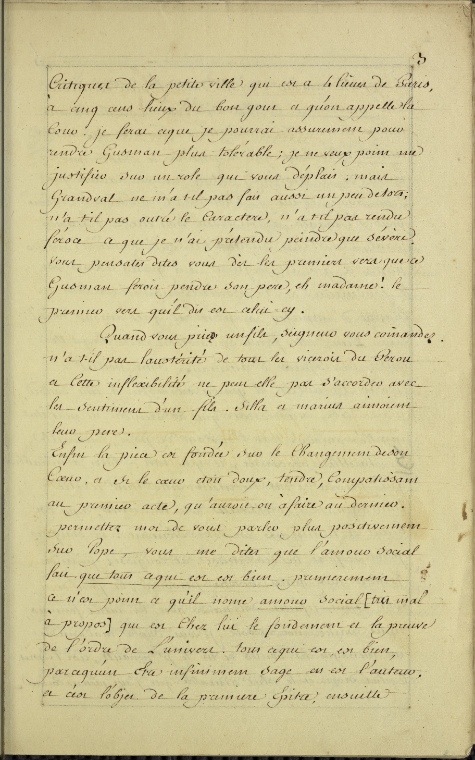 3
Critiques de la petite ville qui est a 4 lieües de Paris,
à cinq cens lieux du bon gout et qu'on appelle la
Cour. je ferai ceque je pourrai assurement pour
rendre Gusman plus tolérable; je ne veux point me
justifier sur un role qui vous deplait. mais
Grandval ne m'a t-il pas fait aussi un peu de tort;
n'a t-il pas outré le Caractere, n'a t-il pas rendu
féroce ce que je n'ai prétendu peindre que sévère.
vous pensates dites vous dès les premiers vers que ce
Gusman feroit pendre son pere, eh madame! le
premier vers qu'il dit est celui cy.
Quand vous priez un fils, seigneur vous comandez.
n'a t-il pas l'austérité de tous les vicerois du Pérou
et Cette inflexibilité ne peut elle pas s'accorder avec
les sentimens d'un fils. Silla et marius aimoient
leur pere.
Enfin la piece est fondée sur le Changement de son
Cœur, et si le cœur etoit doux, tendre, Compatissant
au premier acte, qu'auroit on à faire au dernier.
permettez moi de vous parler plus positivement
sur Pope, vous me dites que l'amour social
fait que tout ce qui est est bien. premierement
ce n'est point ce qu'il nome amour social [très mal
à propos] qui est Chez lui le fondement et la preuve
de l'ordre de L'univers. tout ce qui est, est bien,
parcequ'un etre infiniment sage en est l'auteur.
et c'est l'objet de la premiere Epitre, ensuitte